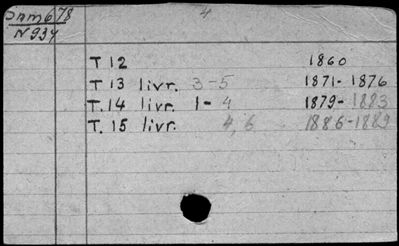 4
678
N 934
T 12 1860
T 13 livr. 3-5 1871-1876
T.14 livr. 1-4 1879-1883
T. 15 livr. 4,6 1886-1889